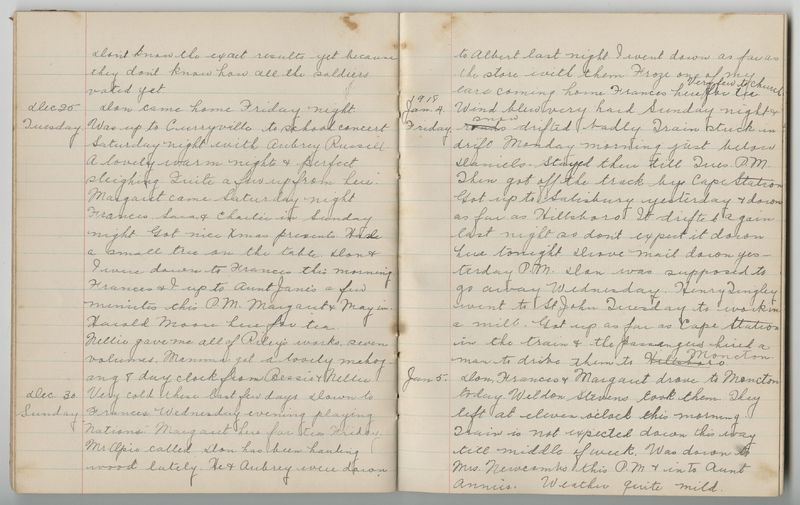 dont know the exact results yet because
they dont know how all the soldiers
voted yet
Dec 25 Don came home Friday night
Tuesday Was up to Curryville to school concert
Saturday night with Aubrey Russell
A lovely warm night & perfect
sleighing Quite a few up from here.
Margaret came Saturday night
Frances, Sara & Charlie in Sunday
night Got nice Xmas presents Had
a small tree on the table. Don &
I were down to Frances this morning
Frances & I up to Aunt Janie's a few
minutes this P.M. Margaret & May in.
Harold Moore here for tea.
Nellie gave me all of Riley's works, seven
volumes. Mamma got a lovely mahog-
any 8 day clock from Bessie & Nellie
Dec. 30 Very cold these last few days Down to
Sunday Frances Wednesday evening playing
Nations. Margaret here for tea Friday,
Mr Opie called Don has been hauling
wood lately. He & Aubrey were down
to Albert last night I went down as far as
the store with them Froze one of my
Very few to church
ears coming home Frances here for tea
1918
Jan. 4. Wind blew very hard Sunday night &
snow
Friday drifted badly Train stuck in
drift Monday morning just below
Daniels. Stayed there till Tues. P.M.
Then got off the track by Cape Station
Got up to Salisbury yesterday & down
as far as Hillsboro It drifted again
last night so dont expect it down
here tonight Drove mail down yes-
terday P.M. Don was supposed to
go away Wednesday. Henry Tingley
went to St John Tuesday to work in
a mill. Got up as far as Cape Station
in the train & the passengers hired a
man to drive them to Hillsboro Moncton
Jan 5. Don, Frances & Margaret drove to Moncton
today Weldon Stevens took them They
left at eleven oclock this morning.
Train is not expected down this way
till middle of week. Was down to
Mrs. Newcombs this P.M. & into Aunt
Annies. Weather quite mild.